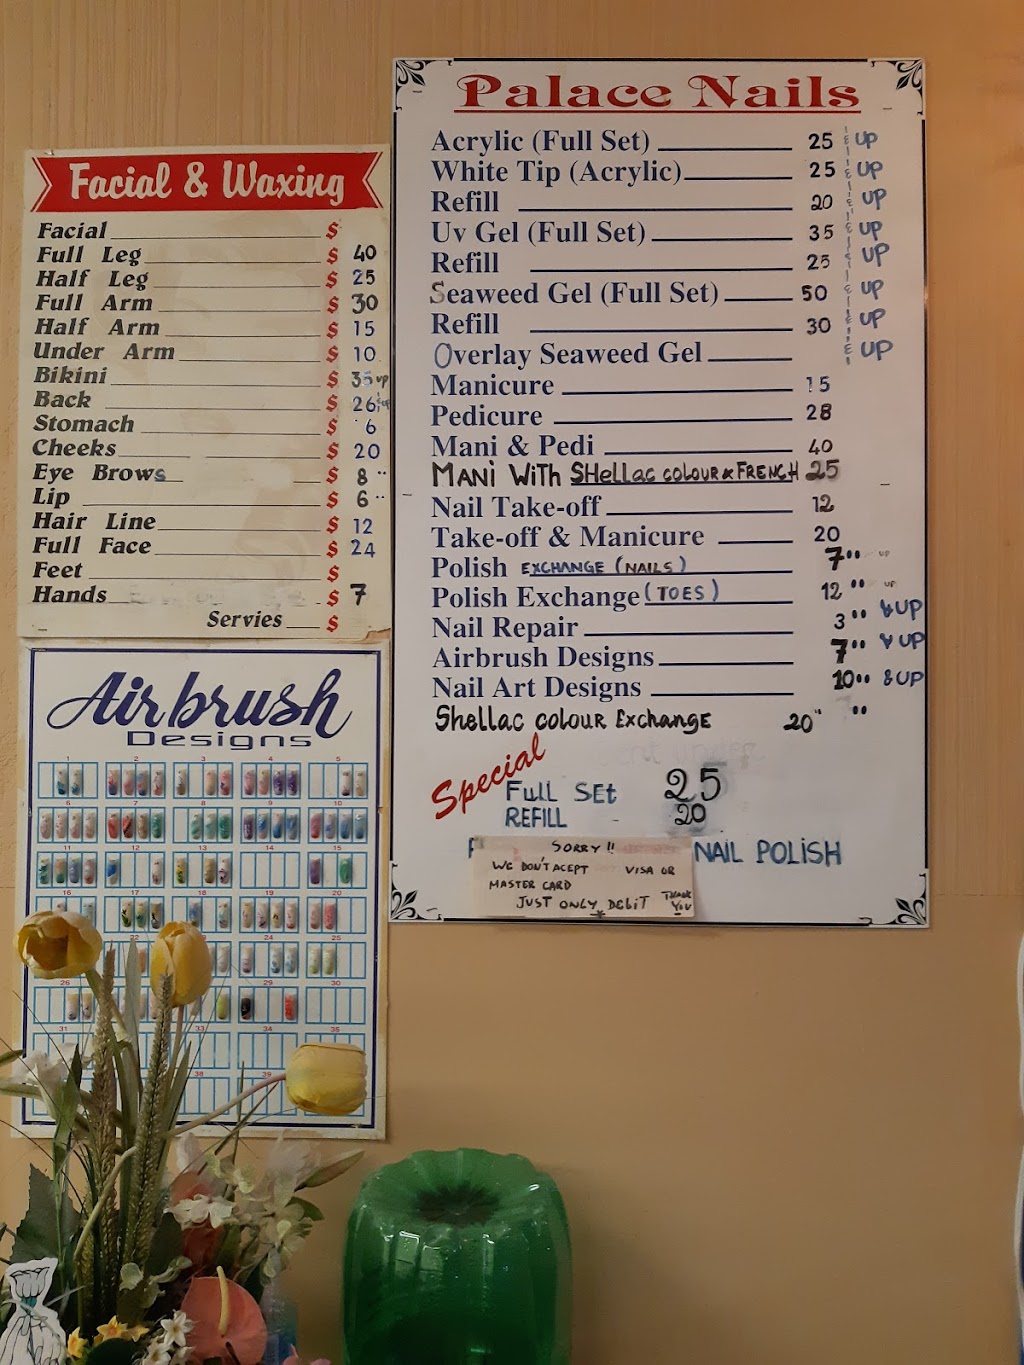 Palace Nails
Acrylic (Full Set) 25 & UP
White Tip (Acrylic) 25 & UP
Refill 20 & UP
Uv Gel (Full Set) 35 & UP
Refill 25 & UP
Seaweed Gel (Full Set) 50 & UP
Refill 30 & UP
Overlay Seaweed Gel & UP
Manicure 15
Pedicure 28
Mani & Pedi 40
MANI WITH SHellac COLOUR & FRENCH 25
Nail Take-off 12
Take-off & Manicure 20
Polish EXCHANGE (NAILS) 7" UP
Polish Exchange (TOES) 12" UP
Nail Repair 3" & UP
Airbrush Designs 7" & UP
Nail Art Designs 10" & UP
Shellac COLOUR Exchange 20"
Special
Full SEt 25
REFILL 20
NAIL POLISH
SORRY !!
WE DON'T ACEPT VISA OR
MASTER CARD
JUST ONLY DEBIT THANK YOU
Facial & Waxing
Facial $
Full Leg $ 40
Half Leg $ 25
Full Arm $ 30
Half Arm $ 15
Under Arm $ 10
Bikini $ 35 up
Back $ 26 & up
Stomach $ 6
Cheeks $ 20
Eye Brows $ 8"
Lip $ 6"
Hair Line $ 12
Full Face $ 24
Feet $
Hands $ 7
Servies $
Airbrush
Designs
1 2 3 4 5
6 7 8 9 10
11 12 13 14 15
16 17 18 19 20
22 23 24 25
26 28 29 30
31 33 34 35
38 39